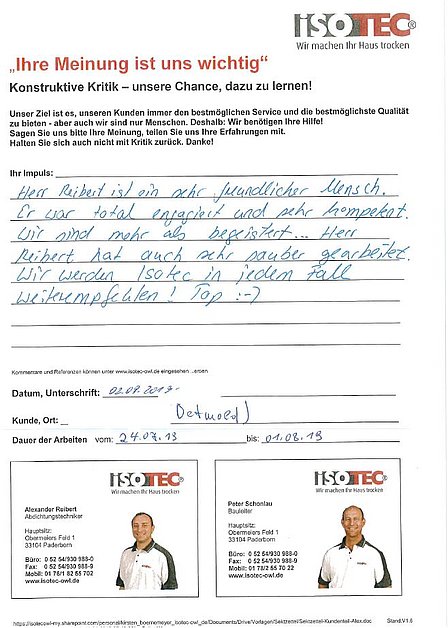 ISOTEC®
Wir machen Ihr Haus trocken
„Ihre Meinung ist uns wichtig“
Konstruktive Kritik – unsere Chance, dazu zu lernen!
Unser Ziel ist es, unseren Kunden immer den bestmöglichen Service und die bestmöglichste Qualität
zu bieten - aber auch wir sind nur Menschen. Deshalb: Wir benötigen Ihre Hilfe!
Sagen Sie uns bitte Ihre Meinung, teilen Sie uns Ihre Erfahrungen mit.
Halten Sie sich auch nicht mit Kritik zurück. Danke!
Ihr Impuls:
Herr Reibert ist ein sehr freundlicher Mensch.
Er war total engagiert und sehr kompetent.
Wir sind mehr als begeistert... Herr
Reibert hat auch sehr sauber gearbeitet.
Wir werden Isotec in jedem Fall
weiterempfehlen! Top :-)
Kommentare und Referenzen können unter www.isotec-owl.de eingesehen
Datum, Unterschrift: 02.09.2013
Kunde, Ort: Detmold
Dauer der Arbeiten vom: 24.07.13 bis: 01.08.13
ISOTEC®
Wir machen Ihr Haus trocken
Alexander Reibert
Abdichtungstechniker
Hauptsitz:
Obermeiers Feld 1
33104 Paderborn
Büro: 0 52 54/930 988-0
Fax: 0 52 54/930 988-9
Mobil: 01 76/1 82 55 702
www.isotec-owl.de
ISOTEC®
Wir machen Ihr Haus trocken
Peter Schonlau
Bauleiter
Hauptsitz:
Obermeiers Feld 1
33104 Paderborn
Büro: 0 52 54/930 988-0
Fax: 0 52 54/930 988-9
www.isotec-owl.de
Stand:V1.6